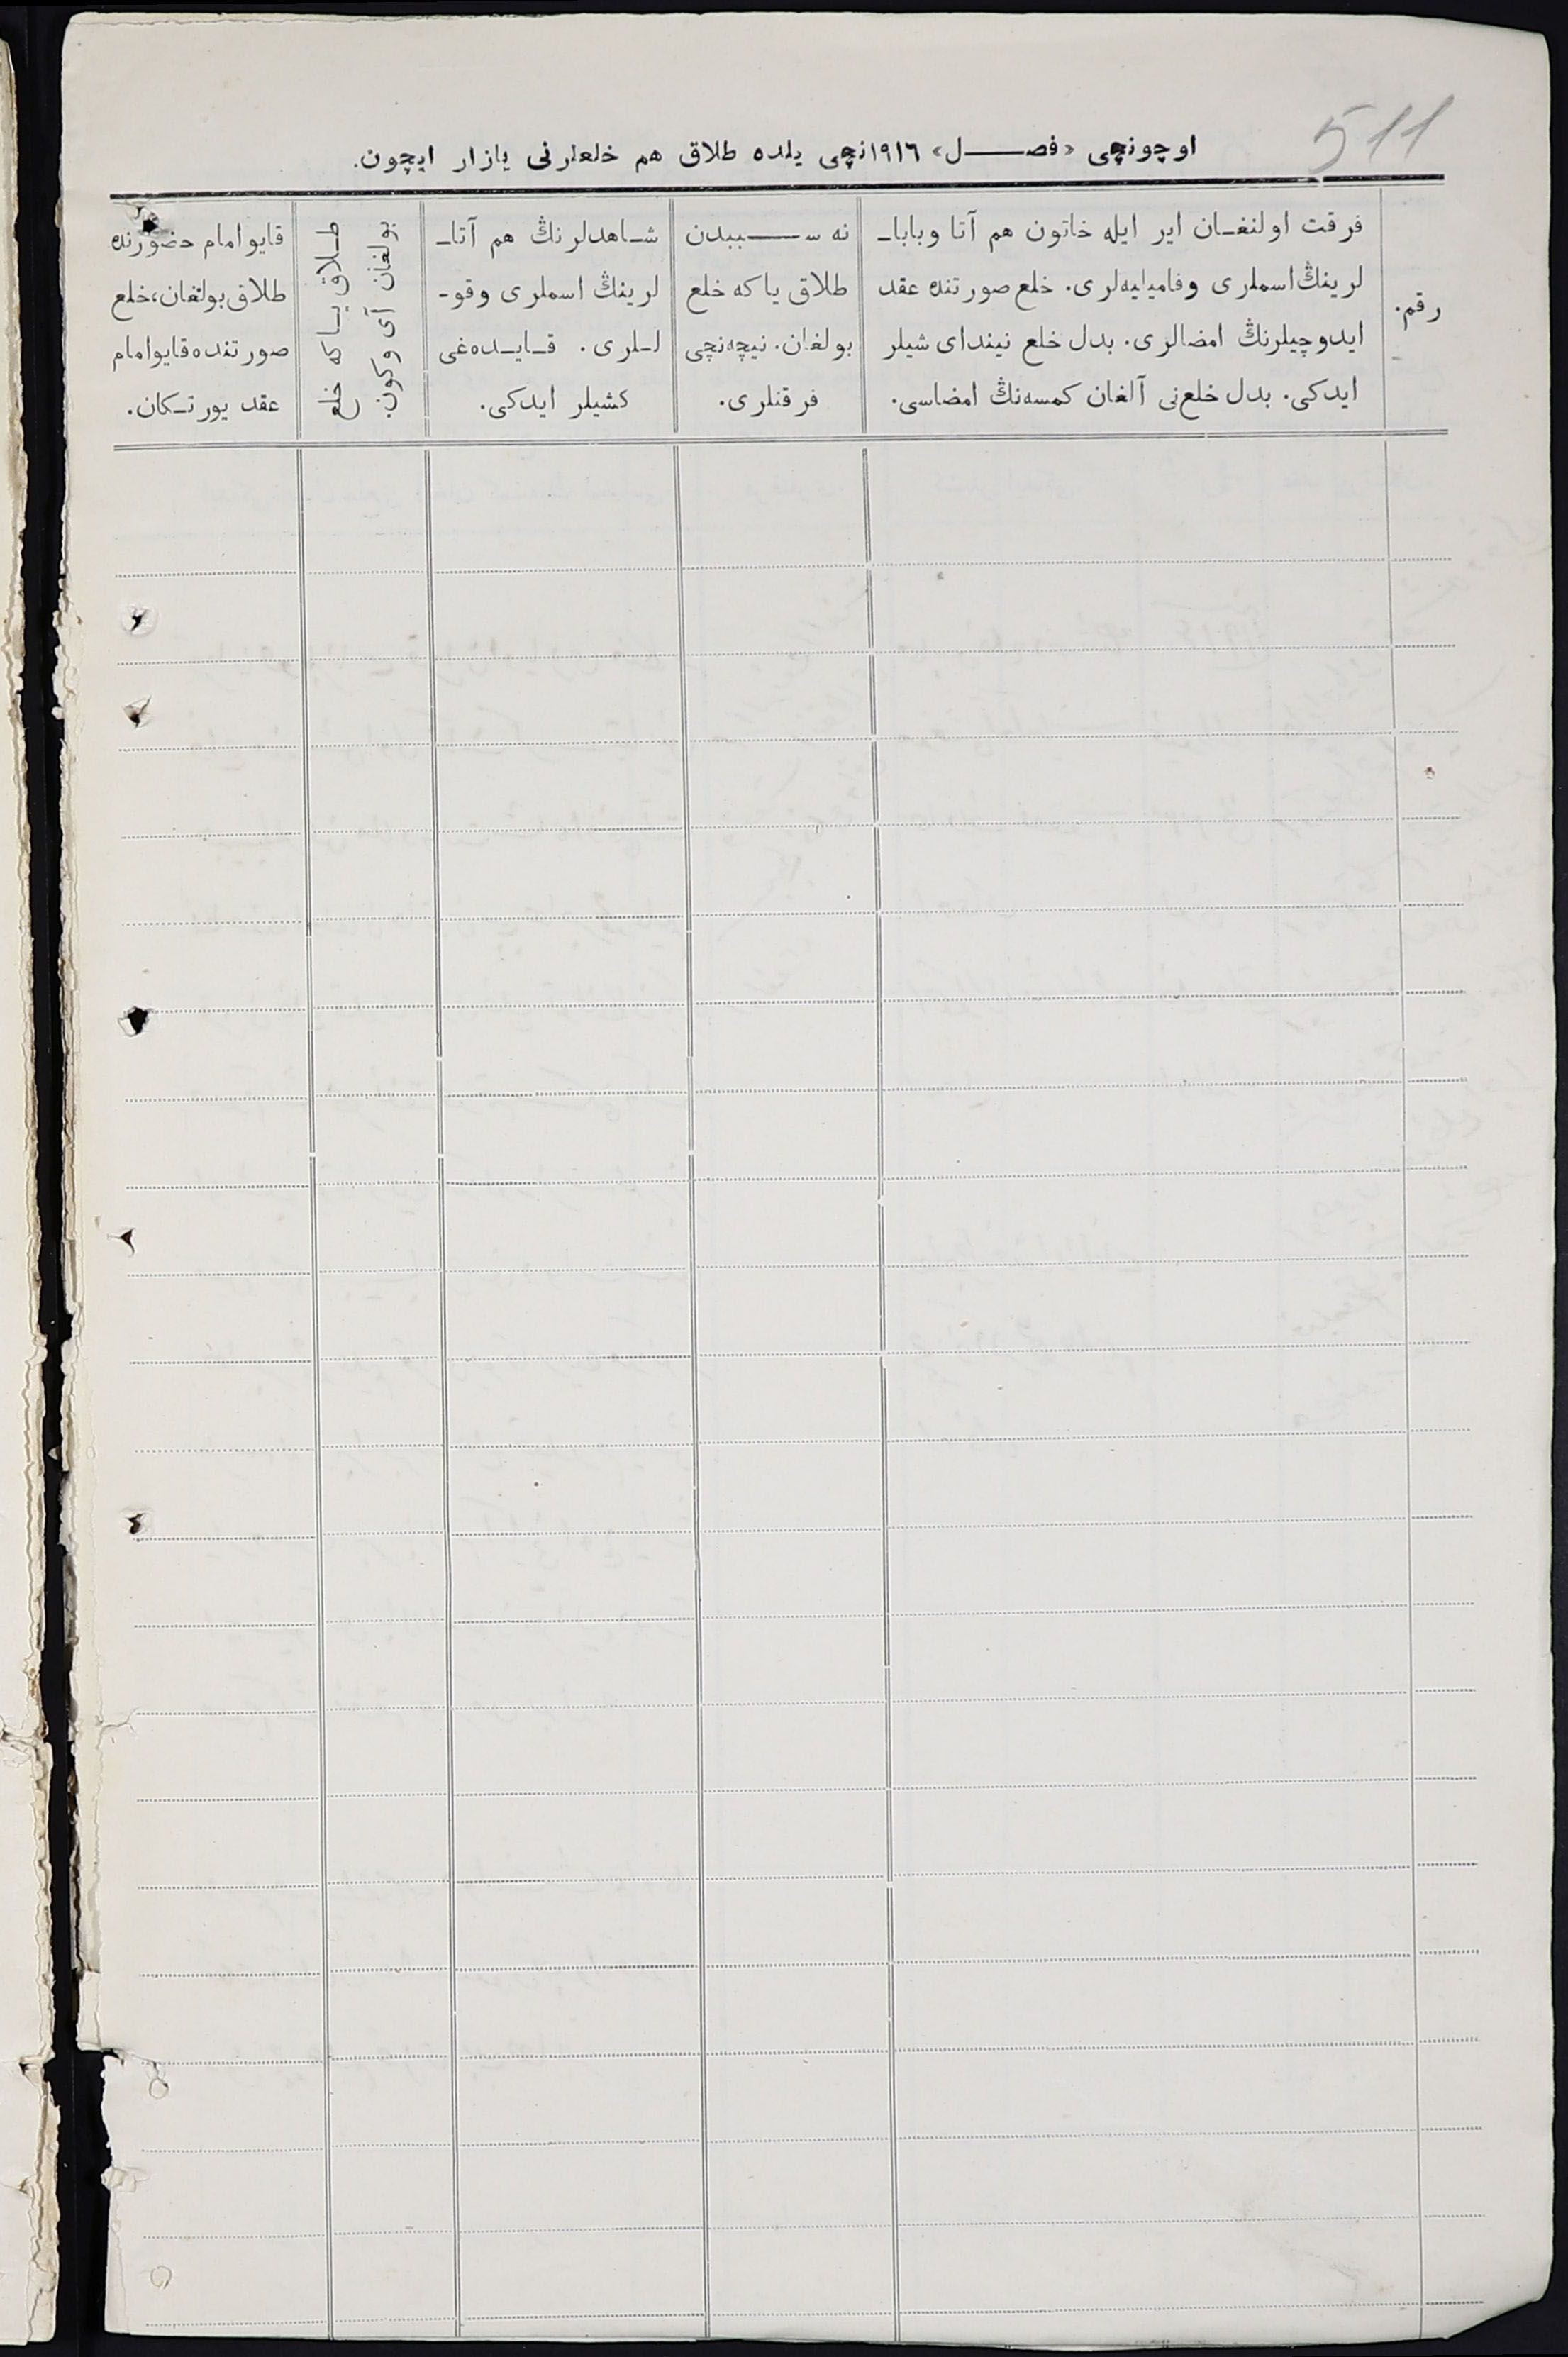 511
اوچونچی «فصل» ۱۹۱٦نچی یلده طلاق هم خلعلرنی یازار ایچون.
رقم.
فرقت اولنغان ایر ایله خاتون هم آتا وبابا-
لرینڭ اسملری وفامیلیه‌لری. خلع صورتنده عقد
ایدوچیلرنڭ امضالری. بدل خلع نیندای شیلر
ایدکی. بدل خلع‌نی آلغان کمسه‌نڭ امضاسی.
نه سببدن
طلاق یا که خلع
بولغان. نیچه‌نچی
فرقتلری.
شاهدلرنڭ هم آتا-
لرینڭ اسملری وقو-
للری. قایده‌غی
کشیلر ایدکی.
طلاق یا که خلع
بولغان آی وکون.
قایو امام حضورنده
طلاق بولغان، خلع
صورتنده قایو امام
عقد یورتکان.